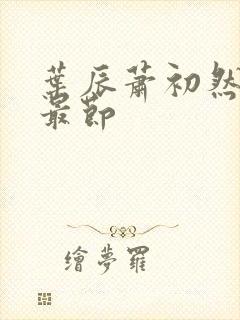 葉辰蕭初然
最節
繪夢羅